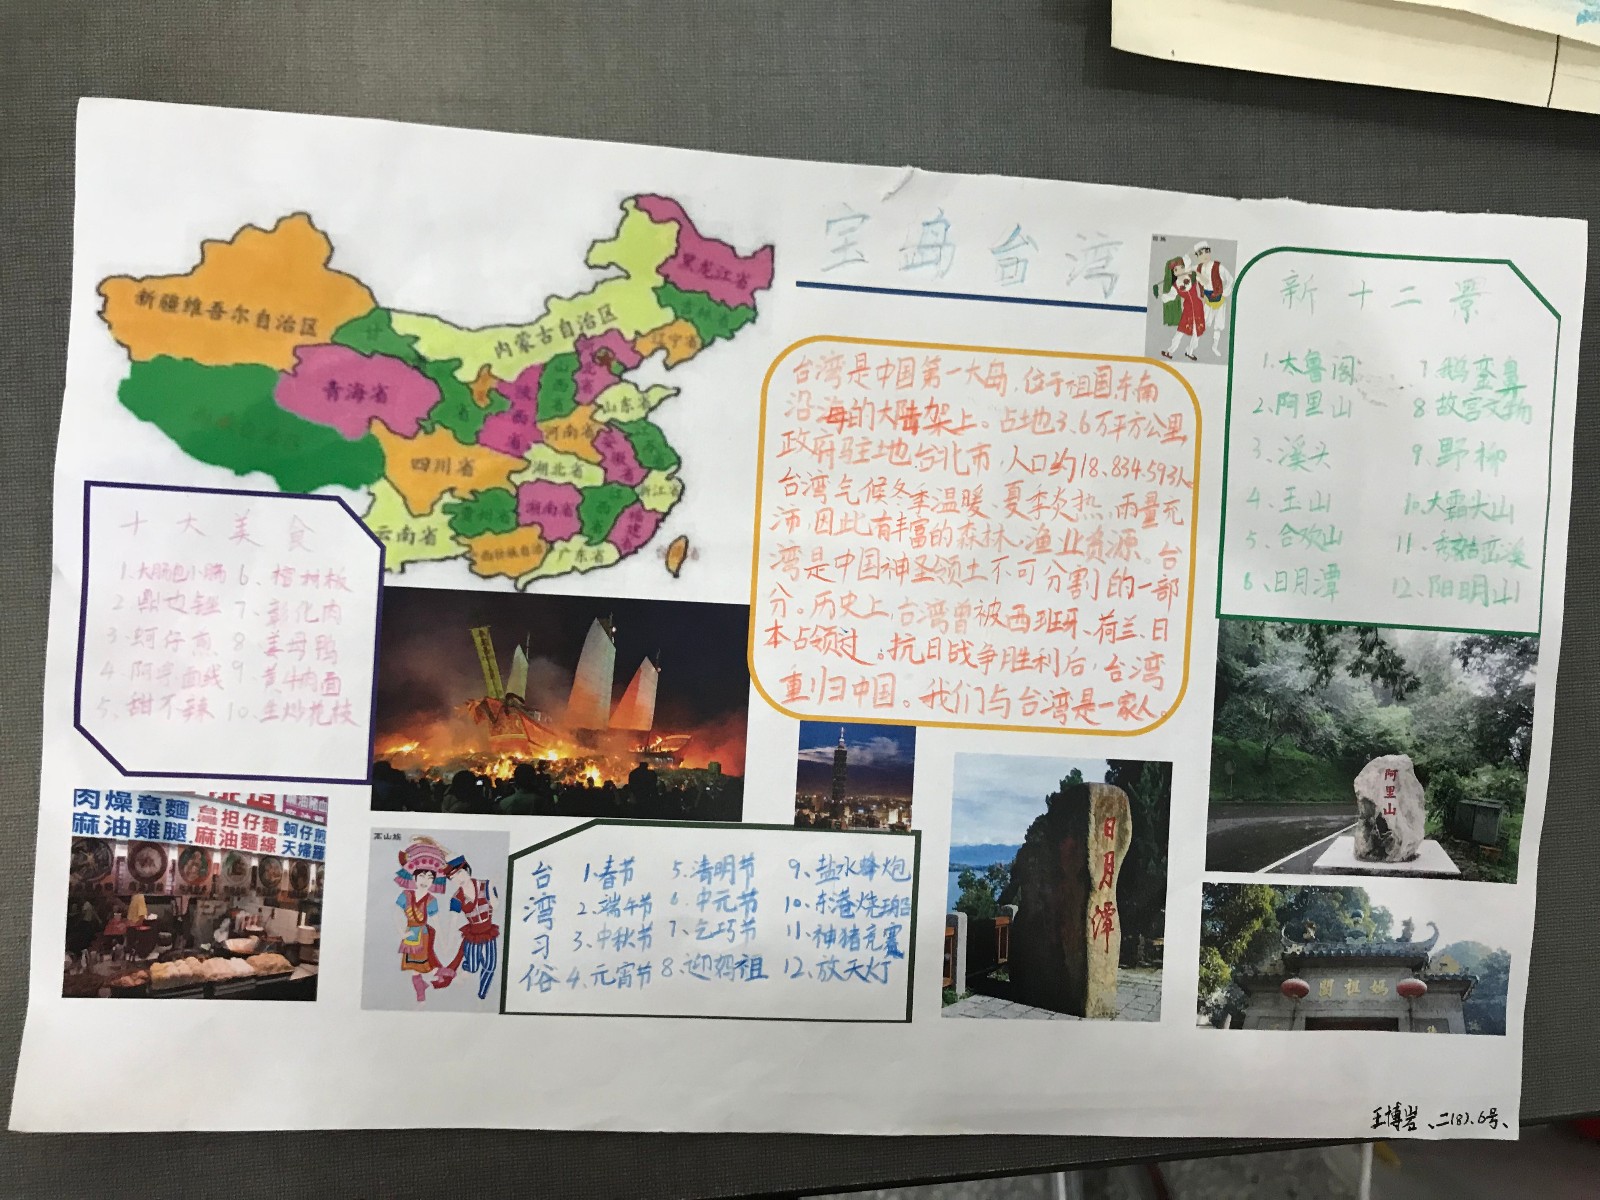 宝岛台湾
新疆维吾尔自治区
甘
青海省
内蒙古自治区
黑龙江省
吉林省
辽宁省
山西省
陕西省
山东省
河南省
安徽省
四川省
湖北省
浙江省
江西省
湖南省
贵州省
福建
云南省
广东省
省
台湾是中国第一大岛，位于祖国东南
沿海的大陆架上。占地3.6万平方公里
政府驻地台北市，人口约18.834.593人
台湾气候冬季温暖、夏季炎热，雨量充
沛，因此有丰富的森林、渔业资源。台
湾是中国神圣领土不可分割的一部
分。历史上，台湾曾被西班牙、荷兰、日
本占领过。抗日战争胜利后，台湾
重归中国。我们与台湾是一家人。
新十二景
1.大鲁阁 7.鹅銮鼻
2.阿里山 8.故宫文物
3.溪头 9.野柳
4.玉山 10.大霸头山
5.合欢山 11.秀姑峦溪
6.日月潭 12.阳明山
十大美食
1.大肠包小肠 6、棺材板
2 鼎边锉 7、彰化肉
3.蚵仔煎 8 姜母鸭
4.阿宗面线 9、黄牛肉面
5、甜不辣 10、生炒花枝
肉燥意麵
麻油雞腿
担仔麵
麻油麵線
蚵仔煎
天婦羅
高山族
台湾习俗
1.春节 5.清明节 9、盐水蜂炮
2.端午节 6.中元节 10、东港烧王船
3.中秋节 7、乞巧节 11、神猪竞赛
4.元宵节 8.迎妈祖 12.放天灯
日月潭
阿里山
閣祖媽
王博岩、二(8).6号、